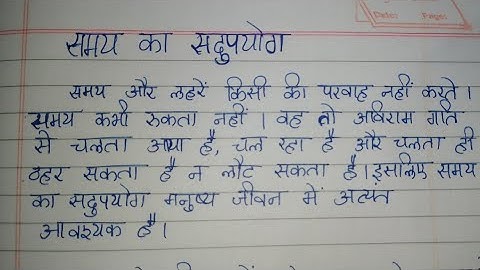 Date: Page:
समय का सदुपयोग
समय और लहरें किसी की परवाह नहीं करते।
समय कभी रुकता नहीं। वह तो अविराम गति
से चलता आया है, चल रहा है और चलता ही
ठहर सकता है न लौट सकता है। इसलिए समय
का सदुपयोग मनुष्य जीवन में अत्यंत
आवश्यक है।